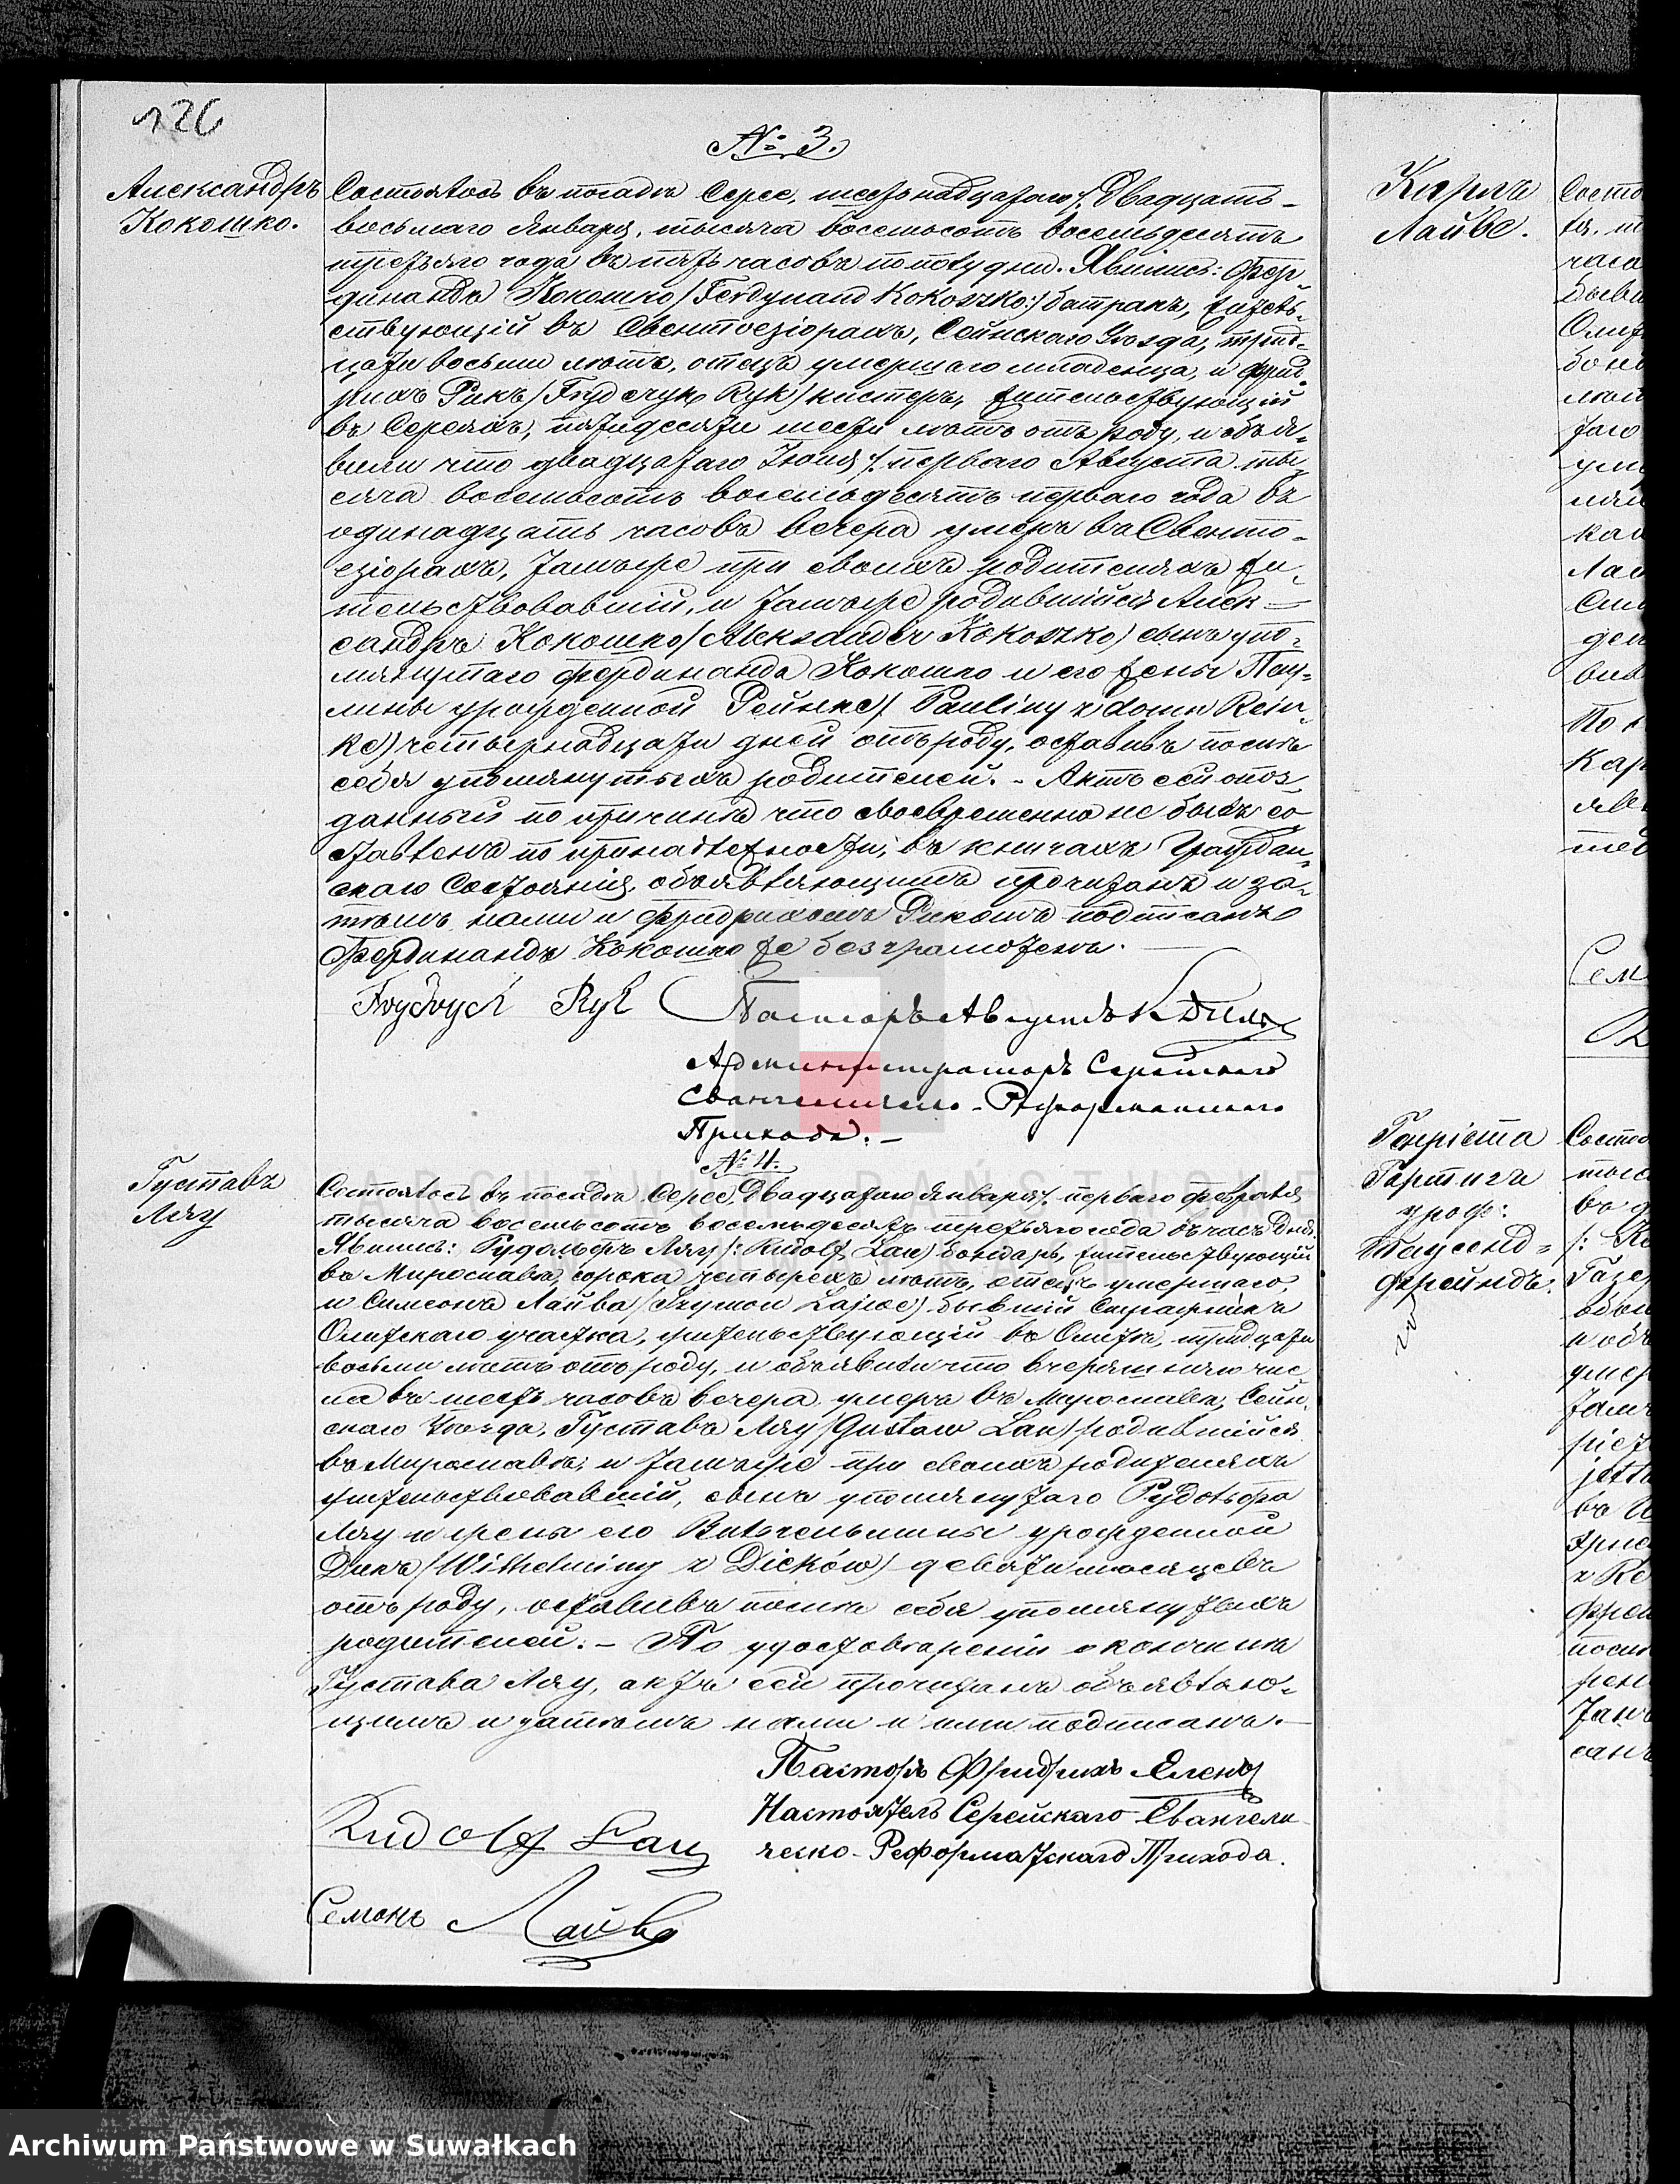 126
№ 3.
Александръ
Кокошко.
Состоялось въ посадѣ Серее, шестьнадцатаго /: Двадцать-
восьмаго Января, тысяча восемьсотъ восемьдесятъ
третьяго года въ пять часовъ пополудни. Явились: Фер-
динандъ Кокошко /Ferdynand Kokoszko:/ батракъ, житель-
ствующій въ Свентоезіорахъ, Сейнскаго Уѣзда, трид-
цати восьми лѣтъ, отецъ умершаго младенца, и Фрид-
рихъ Рикъ /Fryderyk Ryk/ кистеръ, жительствующій
въ Сереяхъ, пятидесяти шести лѣтъ отъ роду, и объя-
вили что двадцатаго Іюля /: перваго Августа ты-
сяча восемьсотъ восемьдесятъ перваго года въ
одинадцать часовъ вечера умеръ въ Свенто-
езіорахъ, тамъже при своихъ родителяхъ жи-
тельствовавшій, и тамъже родившійся Алек-
сандръ Кокошко /Aleksander Kokoszko/ сынъ упо-
мянутаго Фердинанда Кокошко и его жены Пау-
лины урожденной Рейнке /Pauliny z domu Rein-
ke/ четырнадцати дней отъ роду, оставивъ послѣ
себя упомянутыхъ родителей. - Актъ сей опоз-
данный по причинѣ что своевременно не былъ со-
ставленъ по принадлежности, въ книгахъ Граждан-
скаго Состоянія, объявляющимъ прочитанъ и за-
тѣмъ нами и Фридрихомъ Рикомъ подписанъ
Фердинандъ Кокошко же безграмотенъ.
Frydryck Ryk
Пасторъ Августъ К.
Администраторъ Серейскаго
Евангелическо-Реформатскаго
Прихода. -
№ 4.
Густавъ
Ляу
Состоялось въ посадѣ Серее, Двадцатаго Января /: перваго Февраля
тысяча восемьсотъ восемьдесятъ третьяго года въ часъ дня.
Явились: Рудольфъ Ляу /: Rudolf Lau/ бондарь, жительствующій
въ Мирославѣ, сорока четырехъ лѣтъ, отецъ умершаго,
и Симеонъ Лайва /Szymon Lajwe/ бывшій Стражникъ
Олитскаго участка, жительствующій въ Олитѣ, тридцати
восьми лѣтъ отъ роду, и объявили что вчерашняго чис-
ла въ шесть часовъ вечера умеръ въ Мирославѣ, Сейн-
скаго Уѣзда, Густавъ Ляу /Gustaw Lau/ родившійся
въ Мирославѣ, и тамъже при своихъ родителяхъ
жительствовавшій, сынъ упомянутаго Рудольфа
Ляу и жены его Вильгельмины урожденной
Дикъ /Wilhelminy z Dicków/ девяти мѣсяцевъ
отъ роду, оставивъ послѣ себя упомянутыхъ
родителей. - По удостовѣреніи о кончинѣ
Густава Ляу, актъ сей прочитанъ объявляю-
щимъ и затѣмъ нами и ими подписанъ. -
Пасторъ Фридрихъ
Настоятель Серейскаго Евангели-
ческо-Реформатскаго Прихода.
Rudolf Lau
Семонъ Лайво
Карлъ
Лайве.
Генріета
Гертигъ
урож:
Таусенд-
фрейндъ.
Archiwum Państwowe w Suwałkach